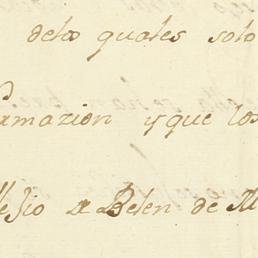 delas quales solo
rmazion y que los
llejio de Belen de M